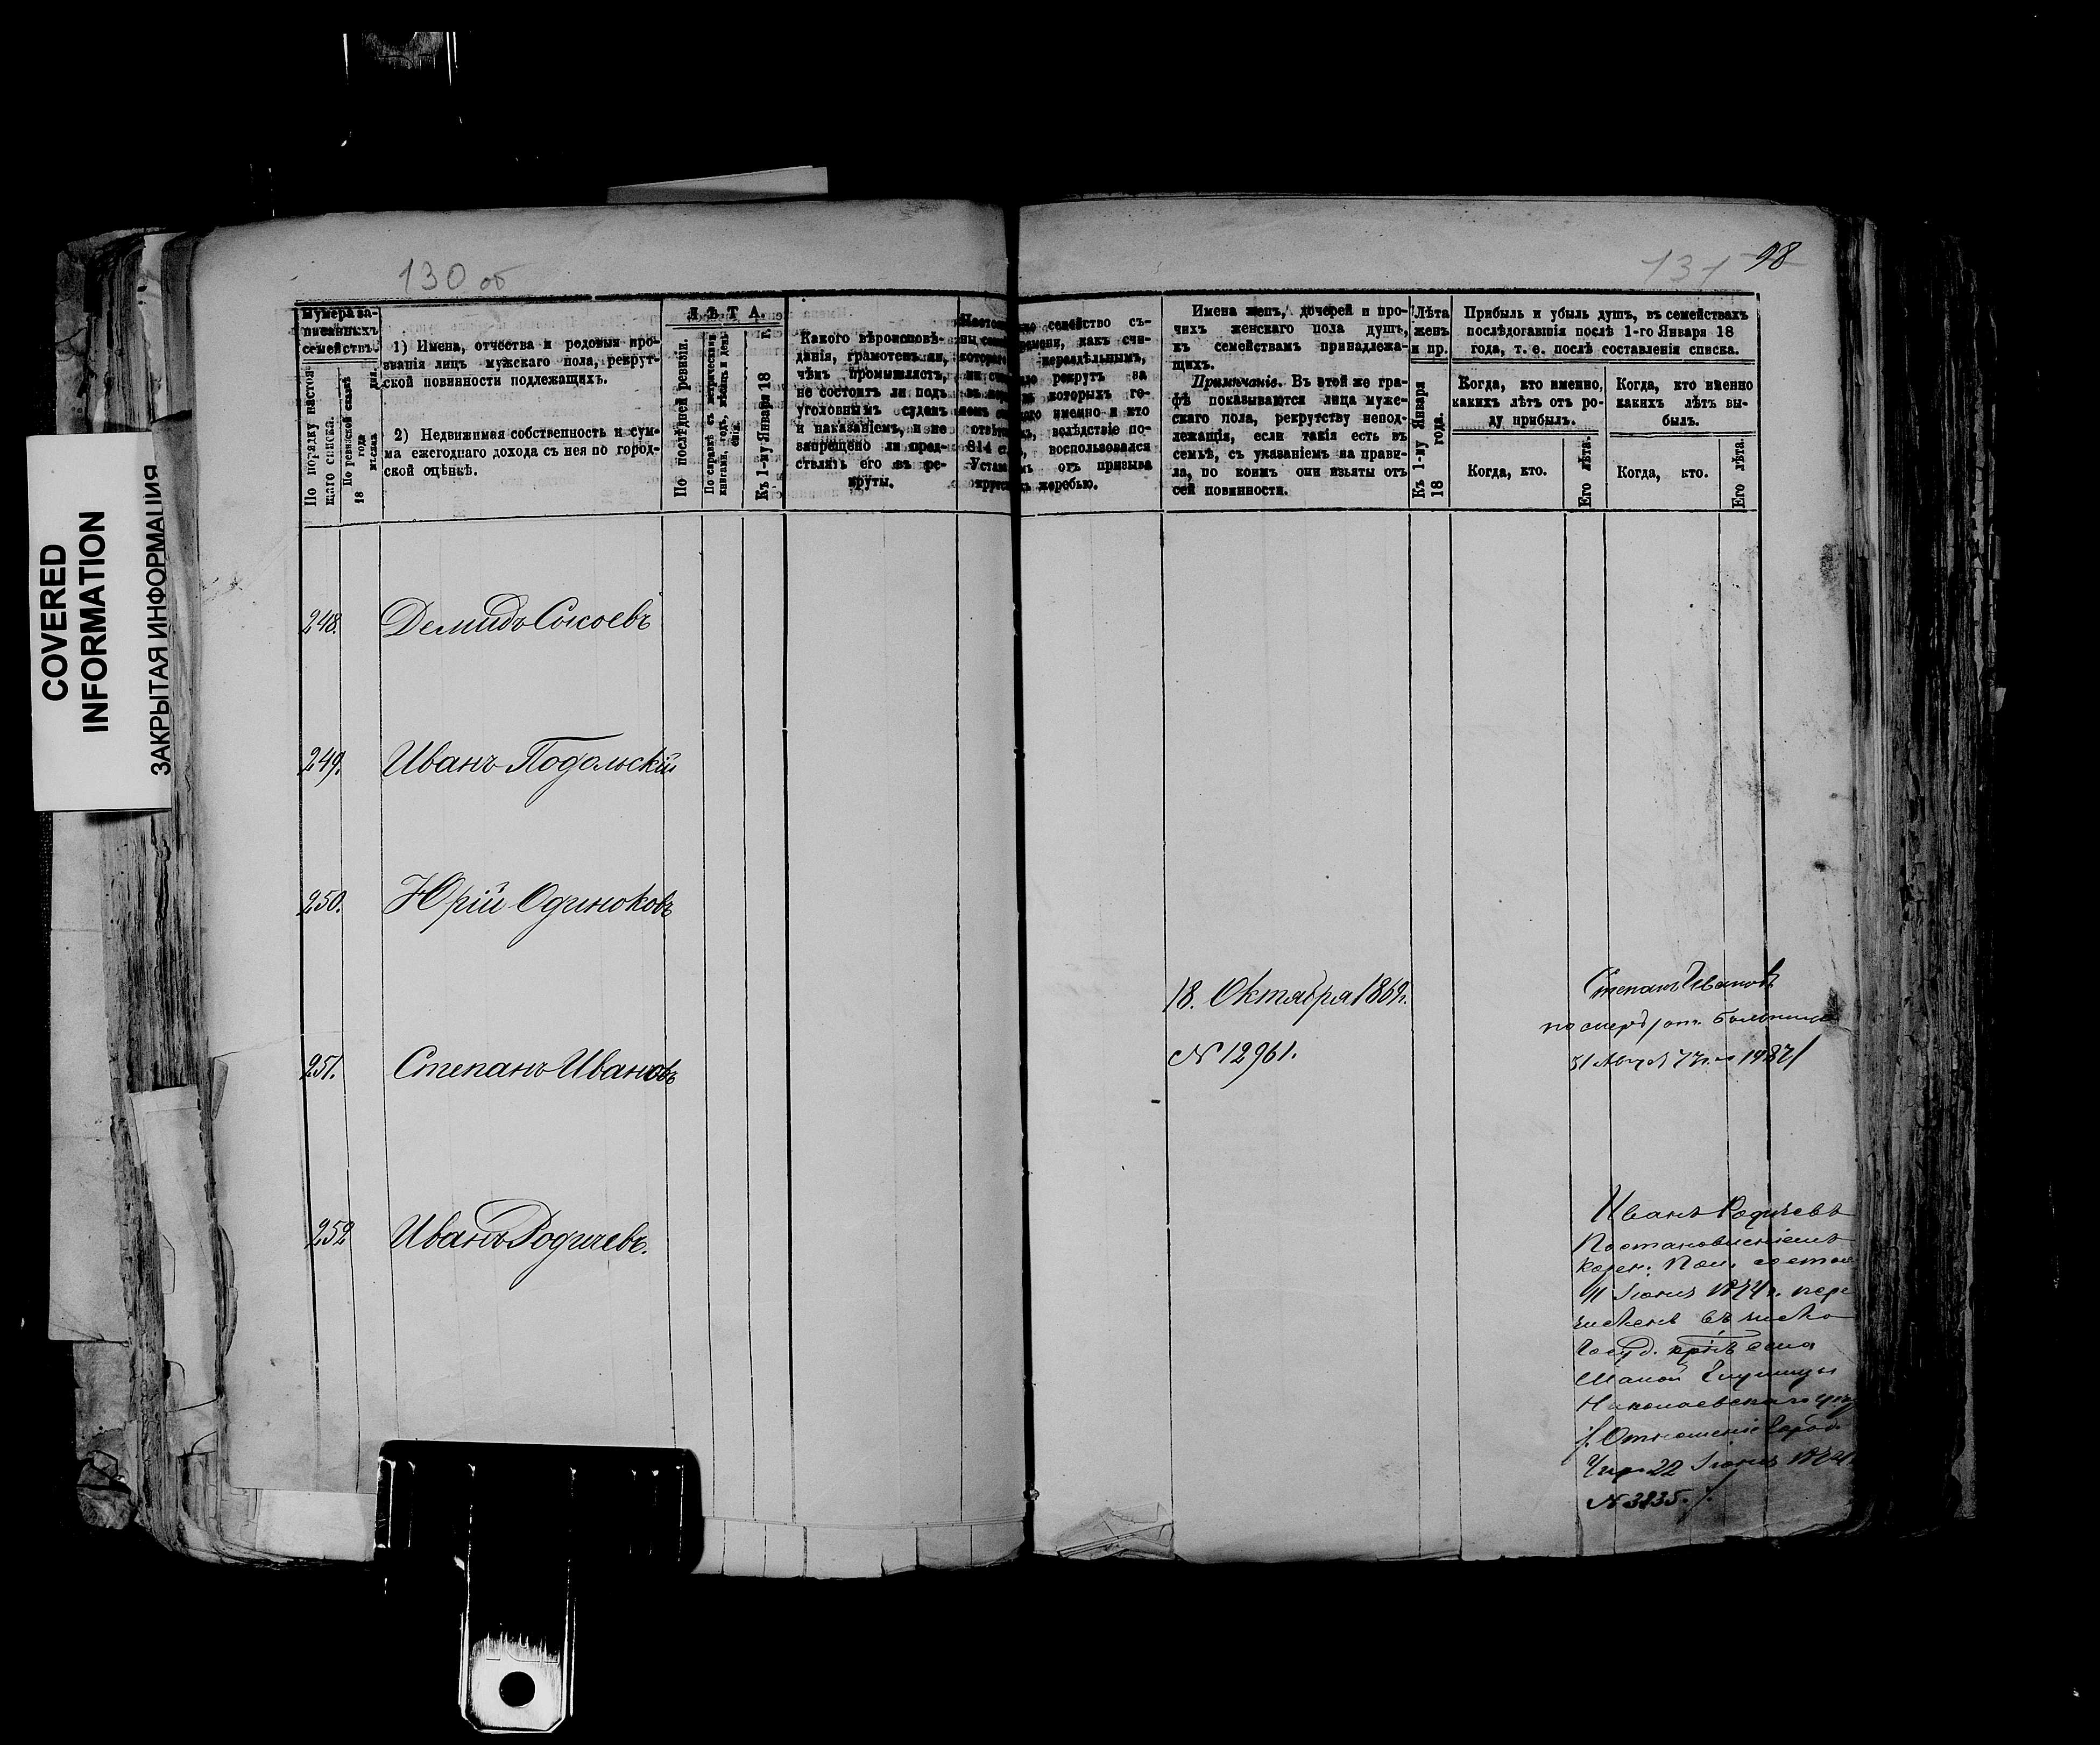 130 об
131 98
COVERED
INFORMATION
ЗАКРЫТАЯ ИНФОРМАЦИЯ
Нумера за-
писанныхъ
семействъ.
По порядку настоя-
щаго списка.
По ревизской сказкѣ
18 года
мѣсяца дня.
1) Имена, отчества и родовыя про-
званія лицъ мужскаго пола, рекрут-
ской повинности подлежащихъ.
2) Недвижимая собственность и сум-
ма ежегоднаго дохода съ нея по город-
ской оцѣнкѣ.
ЛѢТА.
По послѣдней ревизіи.
По справкѣ съ метрическими
книгами, годъ, мѣсяцъ и день
Къ 1-му Января 18 г.
Какого вѣроисповѣ-
данія, грамотенъ ли,
чѣмъ промышляетъ,
не состоитъ ли подъ
уголовнымъ судомъ
и наказаніемъ, и не
запрещено ли пред-
ставлять его въ ре-
круты.
семейство съ-
времени, какъ счи-
нераздѣльнымъ,
рекрутъ за
которыхъ го-
именно и кто
вслѣдствіе по-
814 воспользовался
отъ призыва
жеребью.
Имена женъ, дочерей и про-
чихъ женскаго пола душъ,
къ семействамъ принадлежа-
щихъ.
Примѣчаніе. Въ этой же гра-
фѣ показываются лица муже-
скаго пола, рекрутству непод-
лежащія, если такія есть въ
семьѣ, съ указаніемъ на прави-
ла, по коимъ они изъяты отъ
сей повинности.
Лѣта
женъ
и пр.
Къ 1-му Января
18 года.
Прибыль и убыль душъ, въ семействахъ
послѣдовавшія послѣ 1-го Января 18
года, т. е. послѣ составленія списка.
Когда, кто именно,
какихъ лѣтъ отъ ро-
ду прибылъ.
Когда, кто.
Его лѣта.
Когда, кто именно
какихъ лѣтъ вы-
былъ.
Когда, кто.
Его лѣта.
248. Демидъ Сысоевъ
249. Иванъ Подольскій
250. Юрій Одиноковъ
251. Степанъ Ивановъ
18. Октября 1869г.
N 12961.
Степанъ Ивановъ
252 Иванъ Родичевъ.
Иванъ Родичевъ
Постановленіемъ
Іюня 1874 г. пере
численъ въ число
Госуд. села
Малой Глушицы
Николаевскаго
Отношеніе
22 Іюня 1874
N 3235.